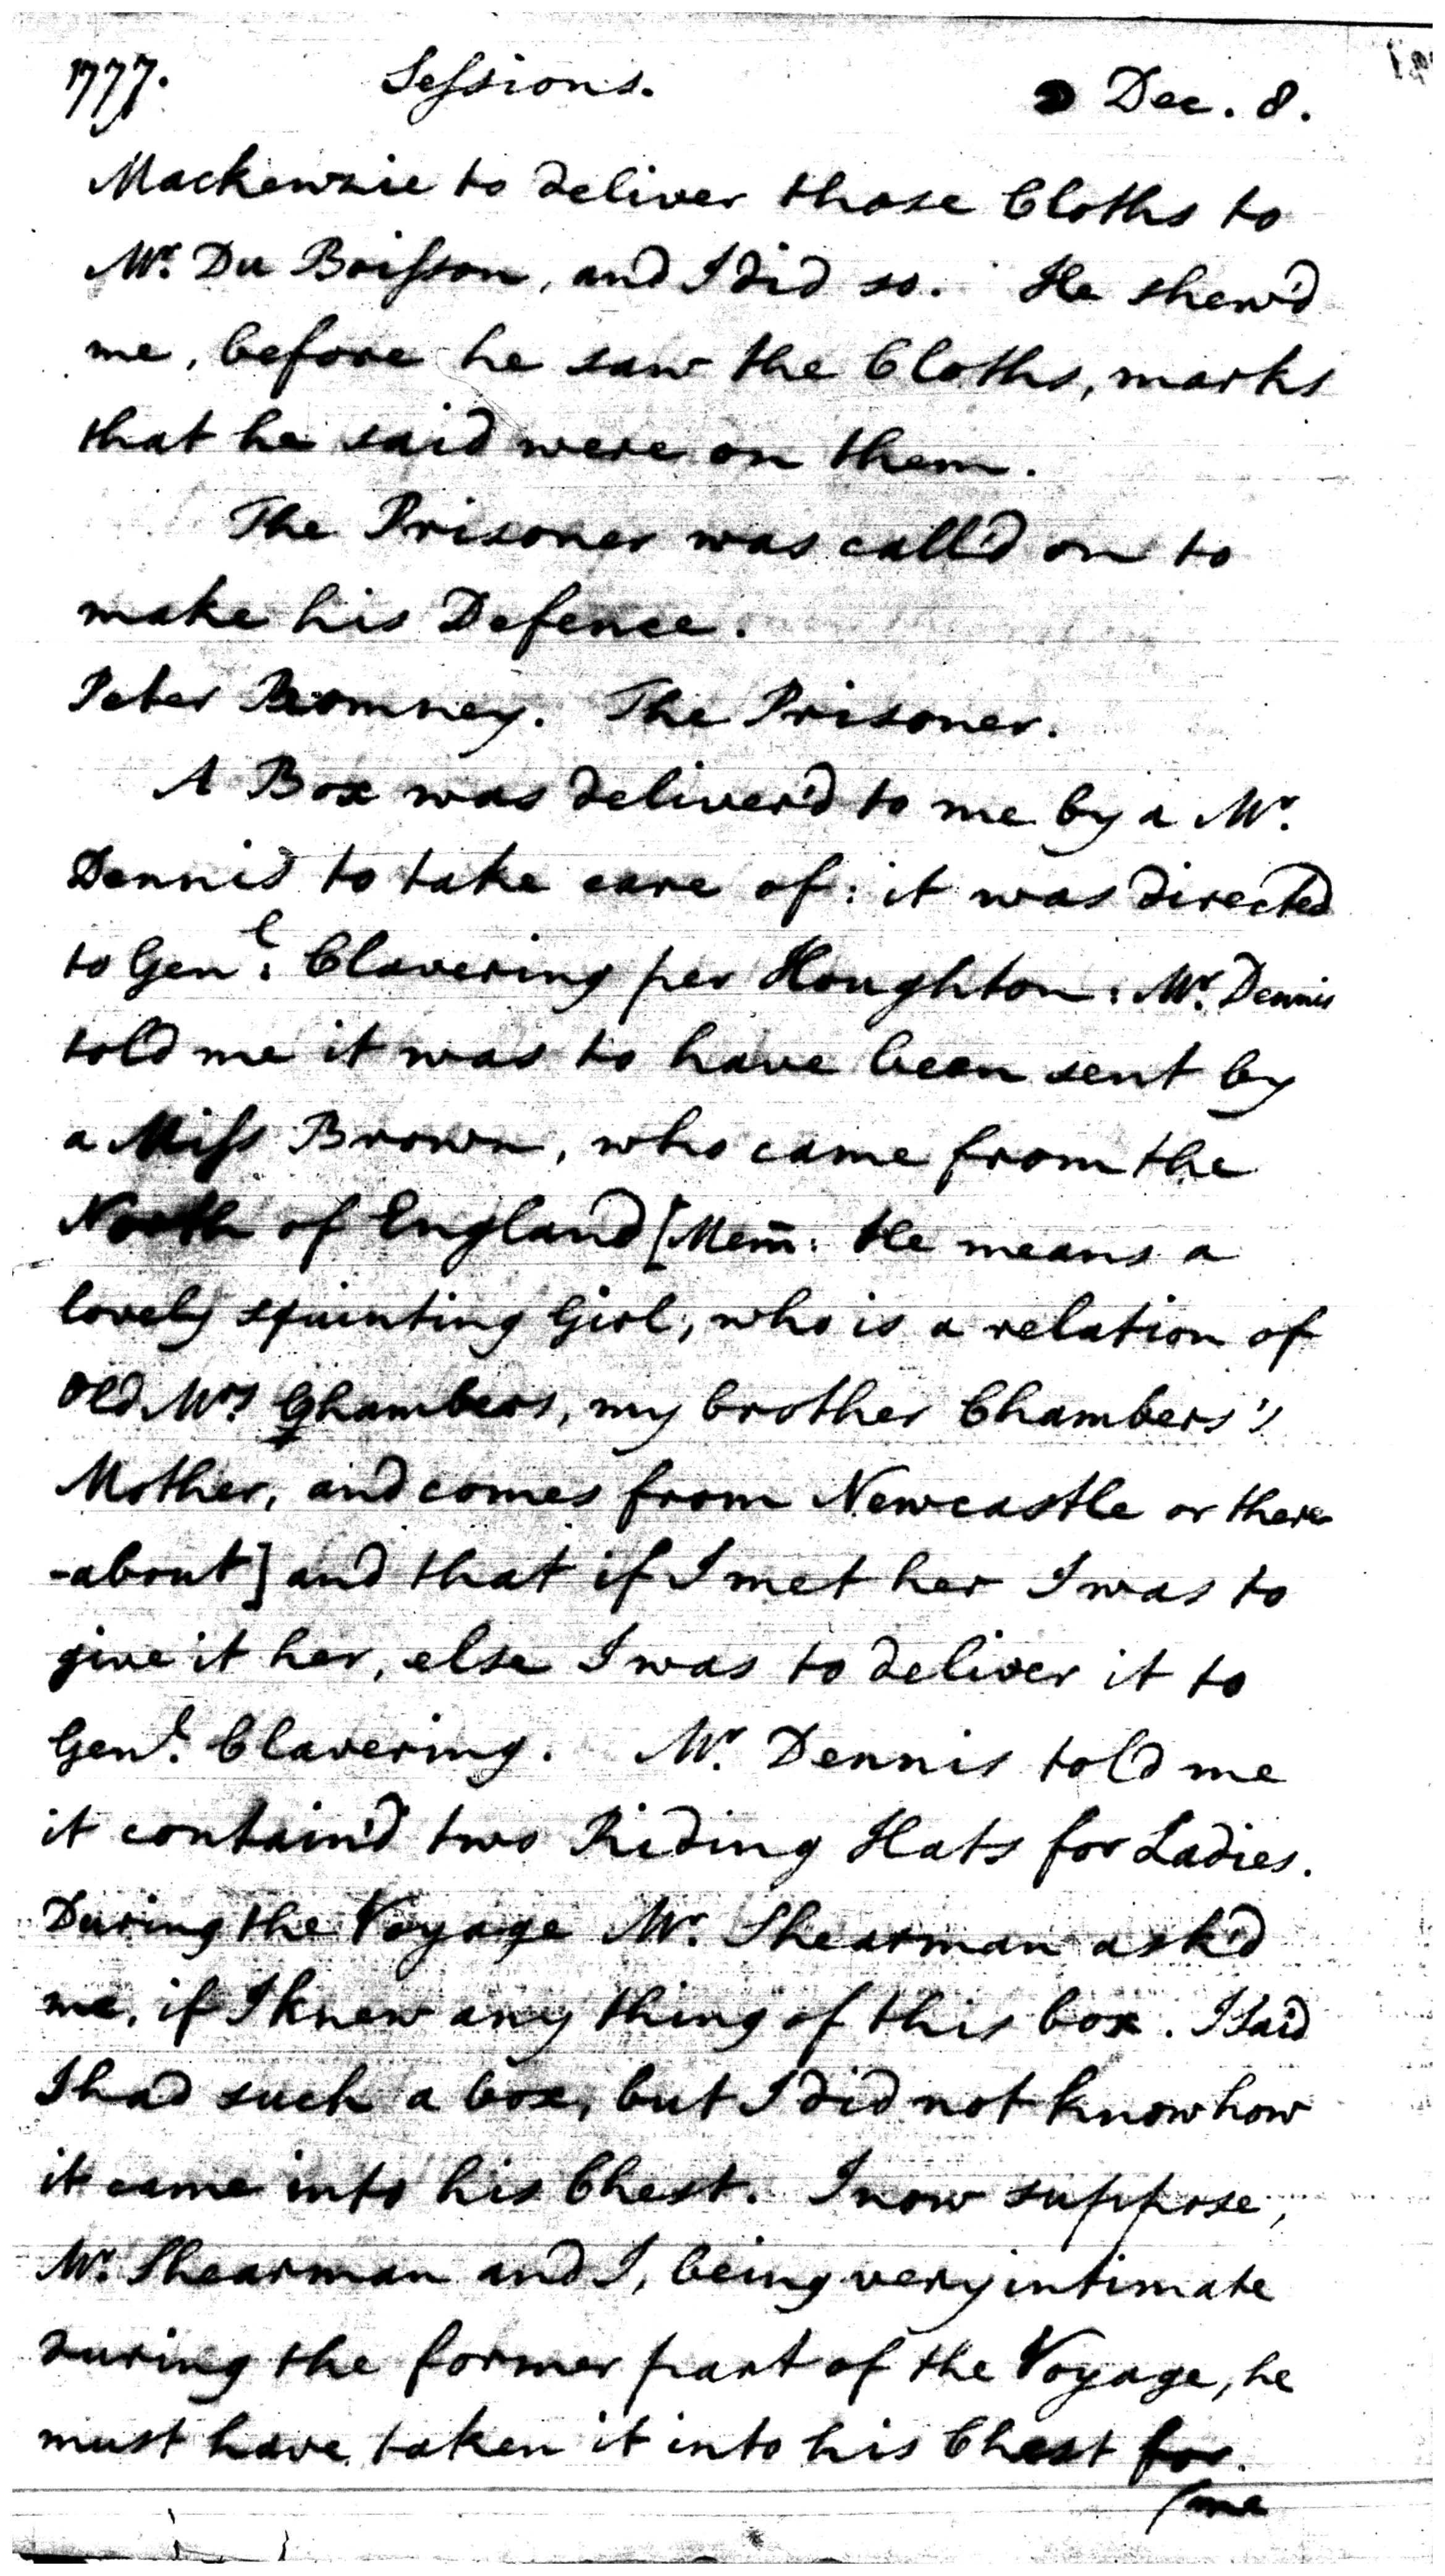 1777. Sessions. Dec. 8.
Mackenzie to deliver those Cloths to
Mr. Du Boisson, and I did so. He shew'd
me, before he saw the Cloths, marks
that he said were on them.
The Prisoner was call'd on to
make his Defence.
Peter Bromney. The Prisoner.
A Box was deliver'd to me by a Mr.
Dennis to take care of: it was directed
to Genl. Clavering per Houghton: Mr. Dennis
told me it was to have been sent by
a Miss Brown, who came from the
North of England [Mem: He means a
lovely squinting Girl, who is a relation of
old Mrs Chambers, my brother Chambers's
Mother, and comes from Newcastle or there
-about] and that if I met her I was to
give it her, else I was to deliver it to
Genl. Clavering. Mr. Dennis told me
it contain'd two Riding Hats for Ladies.
During the Voyage Mr. Shearman ask'd
me, if I knew any thing of this box. I said
I had such a box, but I did not know how
it came into his Chest. I now suppose,
Mr. Shearman and I, being very intimate
during the former part of the Voyage, he
must have taken it into his Chest for
(me